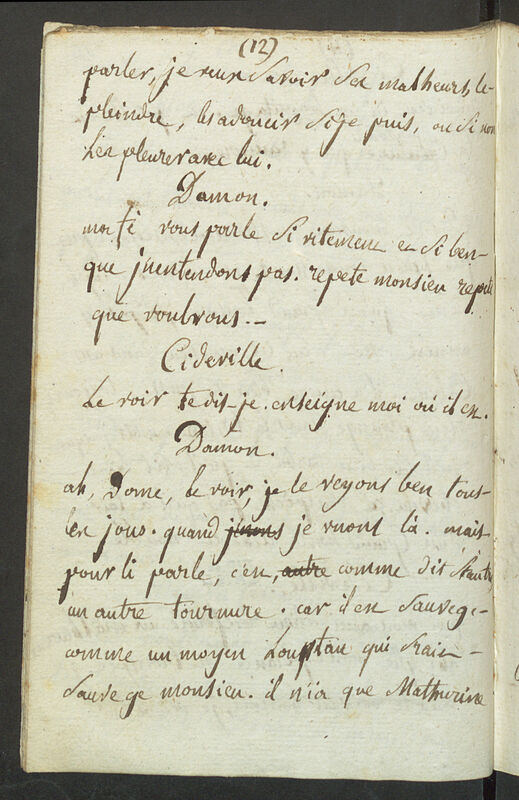 (12)
parler, je veux savoir ses malheurs, le
pleindre, les adoucir si je puis, ou si non
les pleurer avec lui.
Damon.
ma fi vous parle si vitement et si ben-
que j'nentendons pas. repete monsieu repete
que voulvous. -
Cideville.
Le voir te dis-je. enseigne moi où il est.
Damon.
ah, Dame, le voir, je le voyons ben tous-
les jous. quand j'nous je vnons là. mais
pour li parle, c'en, autre comme dit
un autre tournure. car il est sauvege-
comme un moyen Louptau qui srai-
sauvege monsieu. il n'ia que Mathurine